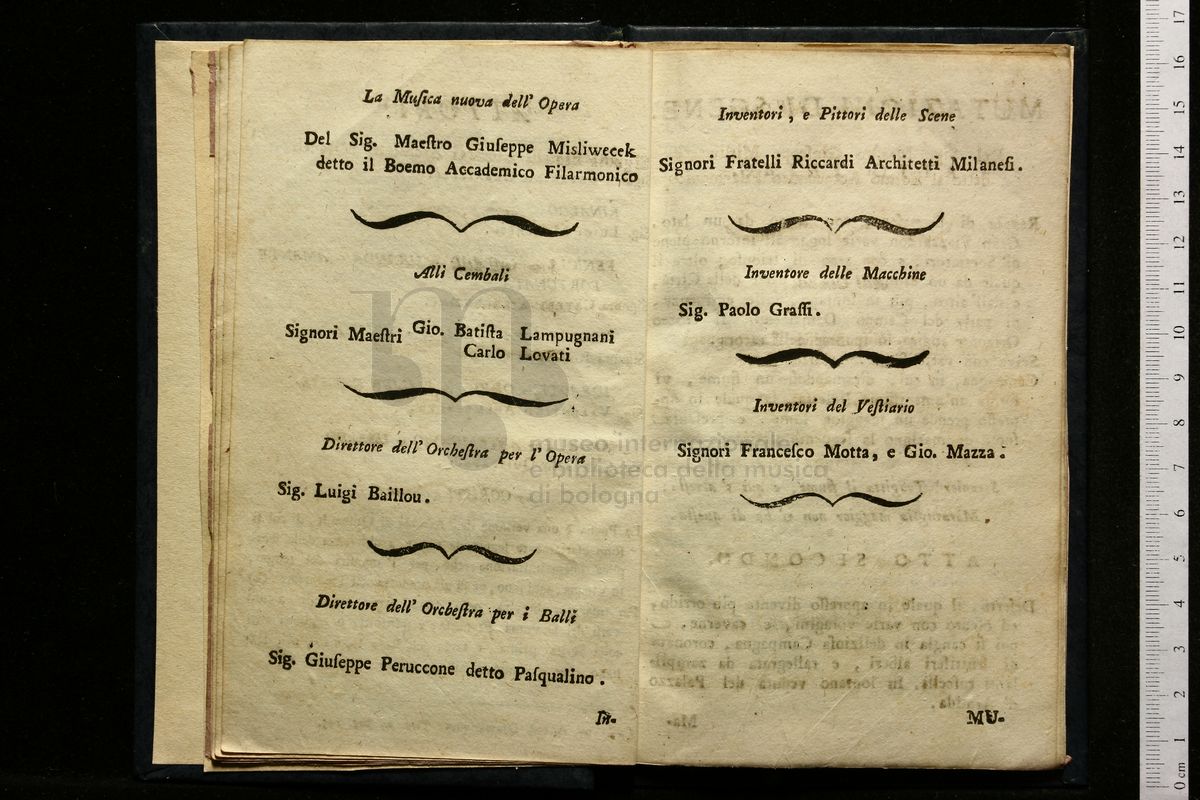 La Muſica nuova dell' Opera
Del Sig. Maeſtro Giuſeppe Misliwecek
detto il Boemo Accademico Filarmonico
Alli Cembali
Signori Maeſtri Gio. Batiſta Lampugnani
Carlo Lovati
Direttore dell' Orcheſtra per l' Opera
Sig. Luigi Baillou.
Direttore dell' Orcheſtra per i Balli
Sig. Giuſeppe Peruccone detto Paſqualino.
In-
Inventori, e Pittori delle Scene
Signori Fratelli Riccardi Architetti Milaneſi.
Inventore delle Macchine
Sig. Paolo Graſſi.
Inventori del Veſtiario
Signori Franceſco Motta, e Gio. Mazza.
MU-
museo internazionale
e biblioteca della musica
di bologna
0 cm 1 2 3 4 5 6 7 8 9 10 11 12 13 14 15 16 17